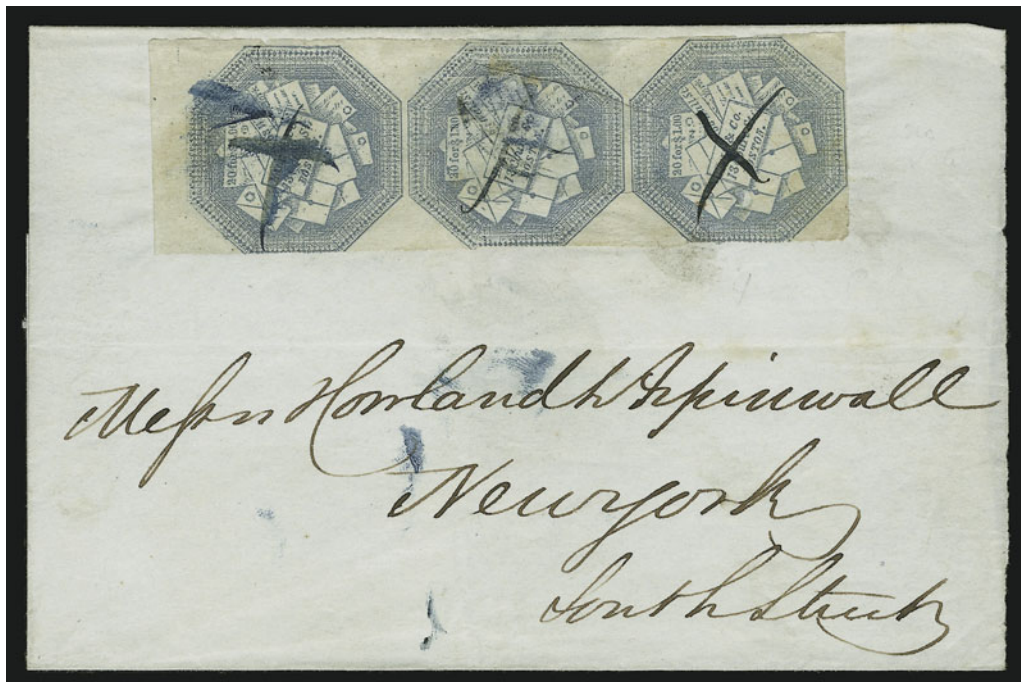 20 for $1.00
20 for $1.00
20 for $1.00
& Co.
13
STON.
Messrs Howland & Aspinwall
New york
South Street